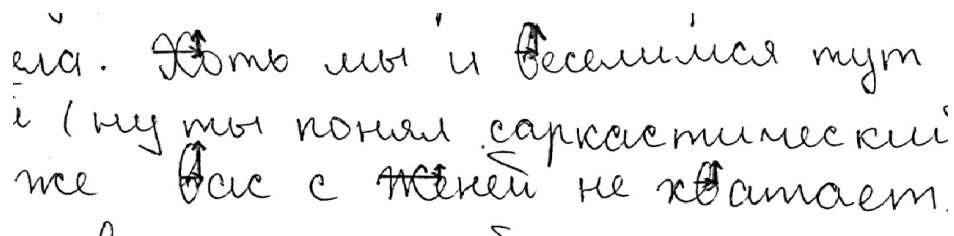 ела. Хоть мы и веселимся тут
й (ну ты понял саркастический
же вас с Женей не хватает.